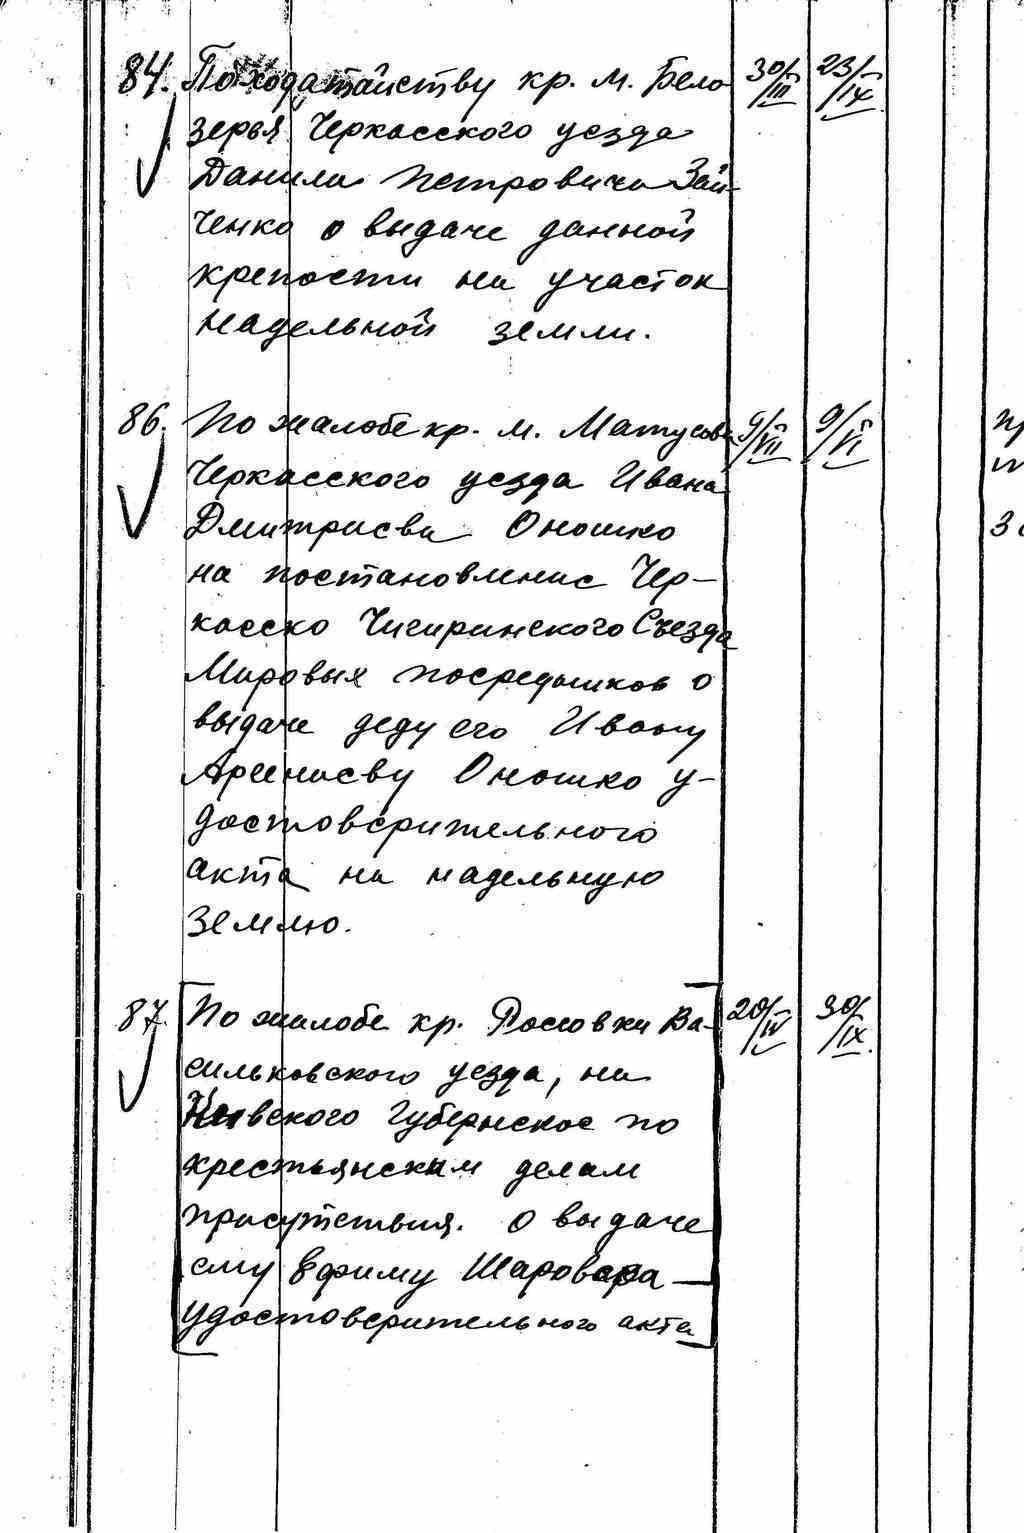 84. По ходатайству кр. м. Бело 30/III 23/IX
зерья Черкасского уезда
Данила Петровича Зай-
ченко о выдаче данной
крепости на участок
надельной земли.
86. По жалобе кр. м. Матусова 9/VII 9/VI
Черкасского уезда Ивана
Дмитриева Оношко
на постановление Чер-
касско Чигиринского Съезда
Мировых посредников о
выдаче деду его Ивану
Арениеву Оношко у-
достоверительного
акта на надельную
землю.
87. По жалобе кр. Расновки Ва- 20/IV 30/IX
сильковского уезда, на
Киевского Губернское по
крестьянским делам
присутствия. о выдаче
ему Ефиму Шаровара
удостоверительного акта